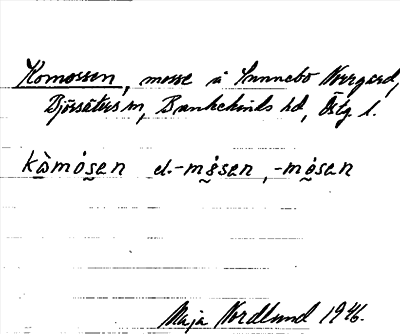 Komossen, mosse å Sunnebo Norrgård,
Björsäters sn, Bankekinds hd, Östg l.
kòmósen el. -mósen, -mósen
Maja Nordlund 1946.